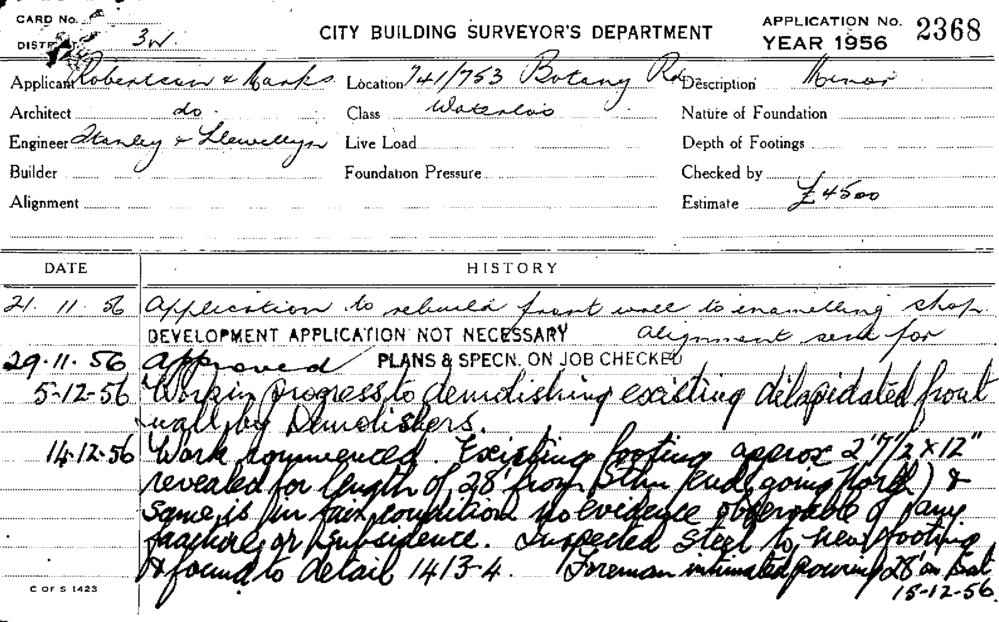 CARD No.
DISTRICT 3W. CITY BUILDING SURVEYOR'S DEPARTMENT APPLICATION No. 2368
YEAR 1956
Applicant Robertson & Marks Location 741/753 Botany Rd Description Minor
Architect do Class Waterloo Nature of Foundation
Engineer Stanley & Llewellyn Live Load Depth of Footings
Builder Foundation Pressure Checked by
Alignment Estimate £4500
DATE HISTORY
21.11.56 Application to rebuild front wall to enamelling shop.
DEVELOPMENT APPLICATION NOT NECESSARY alignment send for
29.11.56 Approved PLANS & SPECN. ON JOB CHECKED
5-12-56 Work in progress to demolishing existing dilapidated front
wall by Demolishers.
14-12-56 Work commenced. Existing footing approx 2'7½ x 12"
revealed for length of 28' from Sthn End (going North) &
same is in fair condition no evidence observable of any
fracture or subsidence. Inspected Steel to new footing
& found to detail 1413-4. Foreman intimated pouring 28' on Sat
15-12-56.
C OF S 1423